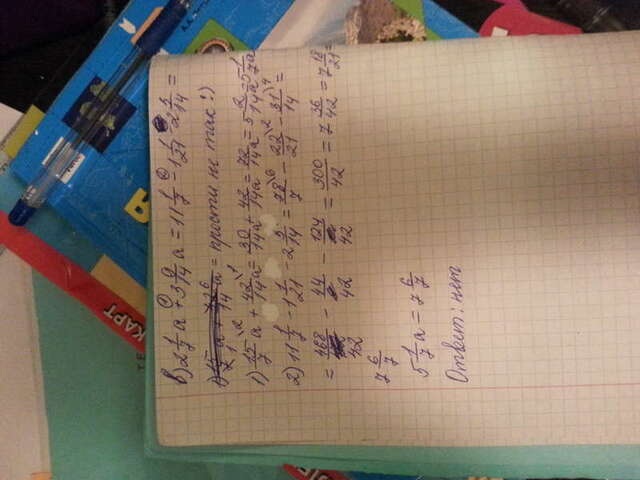 КАРТ
в) 2 1/7 a + 3 9/14 a = 11 1/7 - 1 1/21 - 2 3/14 =
= прости не так!)
1) 15/7 a + 42/14 a = 30/14 a + 42/14 a = 72/14 a = 5 2/14 a = 5 1/7 a
2) 11 1/7 - 1 1/21 - 2 3/14 = 78/7 - 22/21 - 31/14 =
= 468/42 - 44/42 - 124/42 = 300/42 = 7 36/42 = 7 18/21 =
7 6/7
5 1/7 a = 7 6/7
Ответ: нет